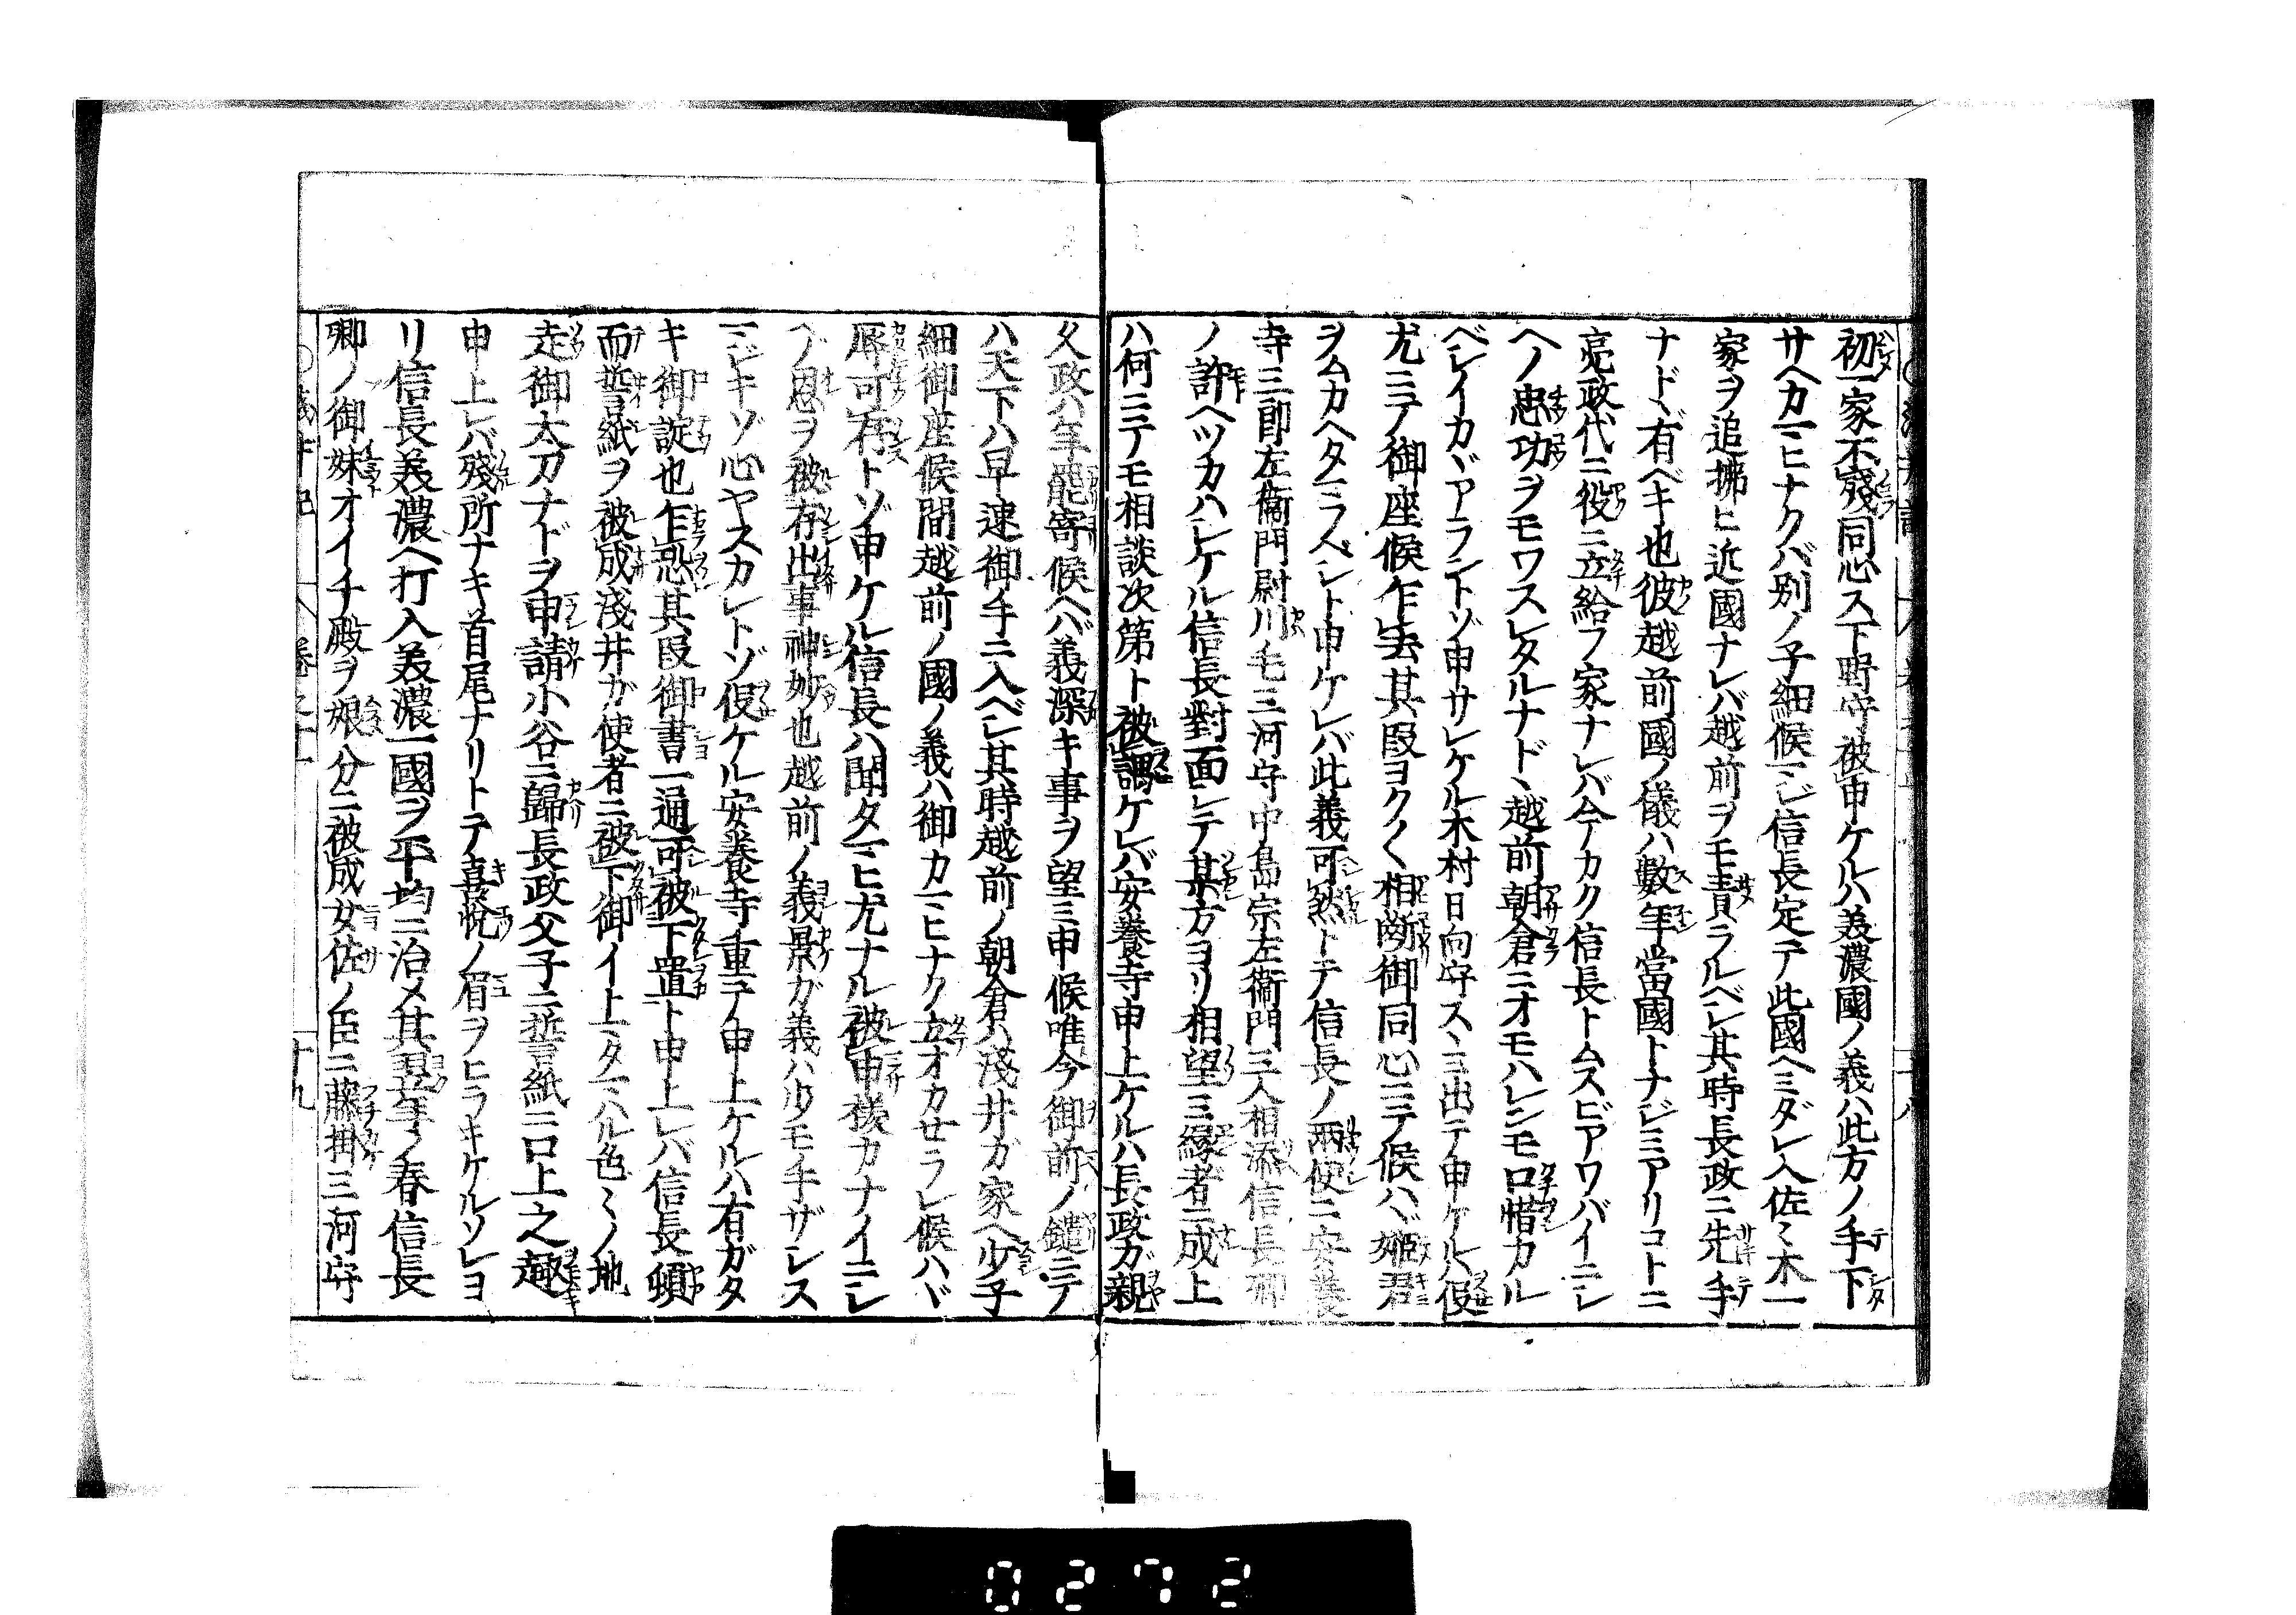 初一家不殘同心ス下野守被申ケルハ美濃國ノ義ハ此方ノ手下
サヘカマヒナクバ別ノ子細候マジ信長定テ此國ヘミダレ入佐々木一
家ヲ追拂ヒ近國ナレバ越前ヲモ責ラルベシ其時長政ニ先手
ナドヽ有ベキ也彼越前國ノ儀ハ數年當國トナジミアリコトニ
亮政代ニ役ニ立給フ家ナレバ今テカク信長トムスビアワバイニシ
ヘノ忠功ヲモワスレタルナドヽ越前朝倉ニオモハレンモ口惜カル
ベシイカヾアラントゾ申サレケル木村日向守スヽミ出テ申ケルハ仮
尤ニテ御座候乍去其段ヨク〱相断御同心ニテ候ハヾ姫君
ヲムカヘタマフベシト申ケレバ此義可然トテ信長ノ兩使ニ安養
寺三郎左衞門尉川毛三河守中島宗左衞門三人相添信長卿
ノ許ヘツカハシケル信長對面シテ某方ヨリ相望ミ縁者ニ成上
ハ何ニテモ相談次第ト被謂ケレバ安養寺申上ケルハ長政ガ親
久政ハ年罷寄候ヘバ義深キ事ヲ望ミ申候唯今御前ノ鑓ニテ
ハ天下ハ早速御手ニ入ベシ其時越前ノ朝倉ハ淺井ガ家ヘ少子
細御座候間越前ノ國ノ義ハ御カマヒナク立オカせラレ候ハヾ
辱可存トゾ申ケル信長ハ聞タマヒ尤ナル被申様カナイニシ
ヘノ恩ヲ被存出事神妙也越前ノ義景ガ義ハ少モ手ザシス
マジキゾ心ヤスカレトゾ仮ケル安養寺重テ申上ケルハ有ガタ
キ御諚也乍恐其段御書一通可被下置ト申上レバ信長頓
而誓紙ヲ被成淺井ガ使者ニ被下御イトマタマハル色々ノ地
走御太刀ナドヲ申請小谷ニ歸長政父子ニ誓紙ニ口上之趣
申上レバ殘所ナキ首尾ナリトテ喜悦ノ眉ヲヒラキケルソレヨ
リ信長美濃ヘ打入美濃一國ヲ平均ニ治メ其翌年ノ春信長
卿ノ御妹オイチ殿ヲ娘分ニ被成女佐ノ臣ニ藤掛三河守
十九
0272